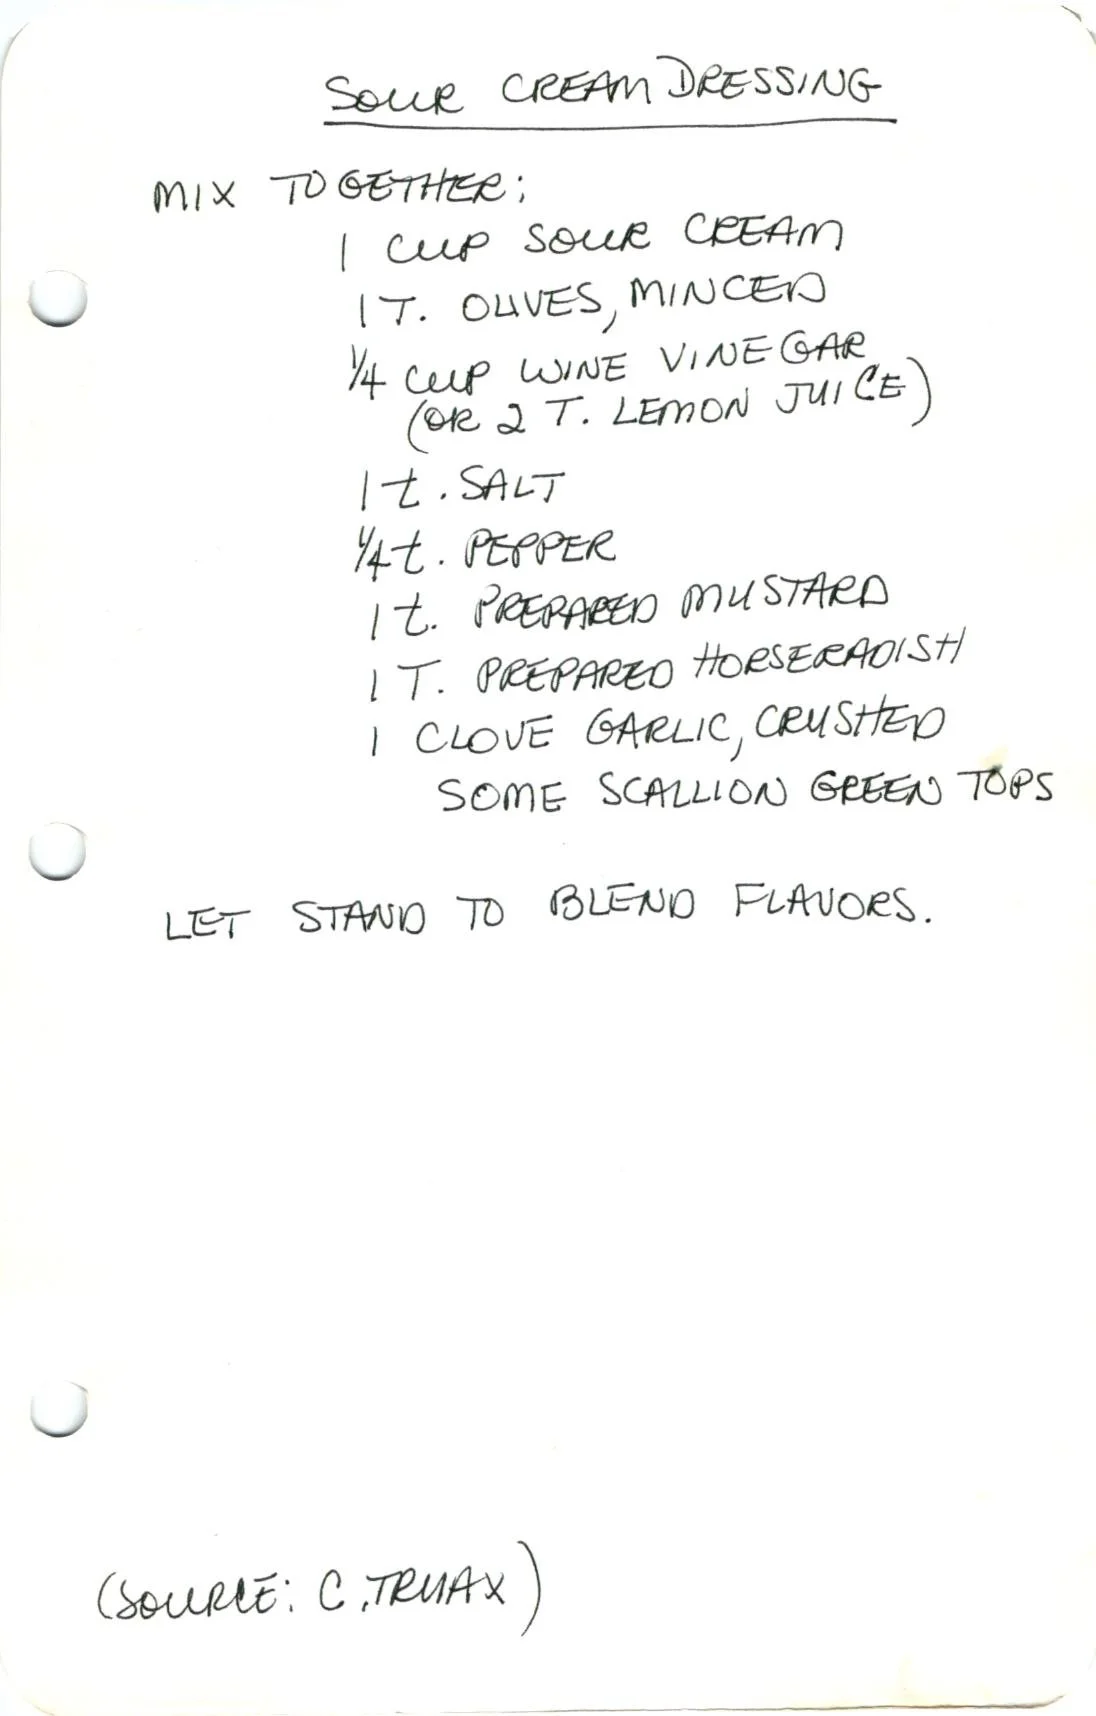 SOUR CREAM DRESSING
MIX TOGETHER:
1 CUP SOUR CREAM
1 T. OLIVES, MINCED
1/4 CUP WINE VINEGAR
(OR 2 T. LEMON JUICE)
1 t. SALT
1/4 t. PEPPER
1 t. PREPARED MUSTARD
1 T. PREPARED HORSERADISH
1 CLOVE GARLIC, CRUSHED
SOME SCALLION GREEN TOPS
LET STAND TO BLEND FLAVORS.
(SOURCE: C. TRUAX)